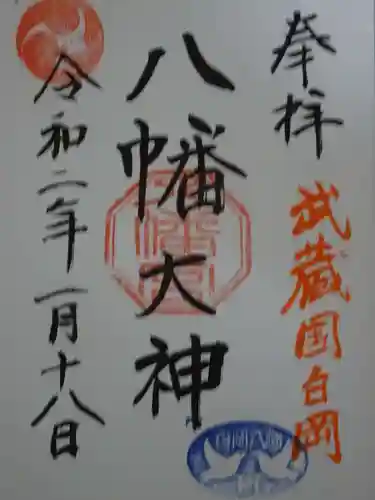 奉拝
武蔵国白岡
八幡大神
令和二年一月十八日